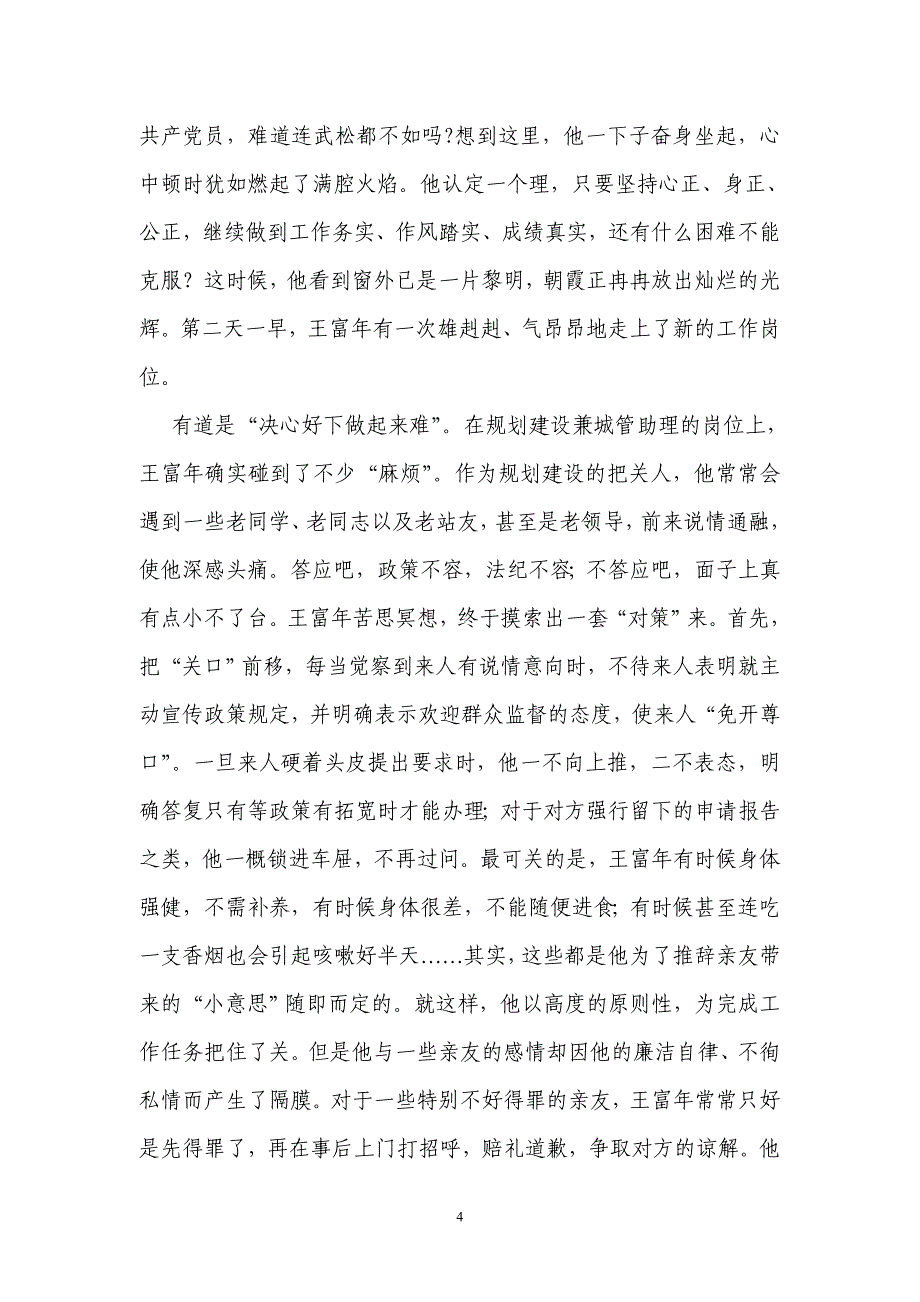 共产党员，难道连武松都不如吗?想到这里，他一下子奋身坐起，心
中顿时犹如燃起了满腔火焰。他认定一个理，只要坚持心正、身正、
公正，继续做到工作务实、作风踏实、成绩真实，还有什么困难不能
克服？这时候，他看到窗外已是一片黎明，朝霞正冉冉放出灿烂的光
辉。第二天一早，王富年有一次雄赳赳、气昂昂地走上了新的工作岗
位。
有道是“决心好下做起来难”。在规划建设兼城管助理的岗位上，
王富年确实碰到了不少“麻烦”。作为规划建设的把关人，他常常会
遇到一些老同学、老同志以及老站友，甚至是老领导，前来说情通融，
使他深感头痛。答应吧，政策不容，法纪不容；不答应吧，面子上真
有点小不了台。王富年苦思冥想，终于摸索出一套“对策”来。首先，
把“关口”前移，每当觉察到来人有说情意向时，不待来人表明就主
动宣传政策规定，并明确表示欢迎群众监督的态度，使来人“免开尊
口”。一旦来人硬着头皮提出要求时，他一不向上推，二不表态，明
确答复只有等政策有拓宽时才能办理；对于对方强行留下的申请报告
之类，他一概锁进车屉，不再过问。最可关的是，王富年有时候身体
强健，不需补养，有时候身体很差，不能随便进食；有时候甚至连吃
一支香烟也会引起咳嗽好半天……其实，这些都是他为了推辞亲友带
来的“小意思”随即而定的。就这样，他以高度的原则性，为完成工
作任务把住了关。但是他与一些亲友的感情却因他的廉洁自律、不徇
私情而产生了隔膜。对于一些特别不好得罪的亲友，王富年常常只好
是先得罪了，再在事后上门打招呼，赔礼道歉，争取对方的谅解。他
4